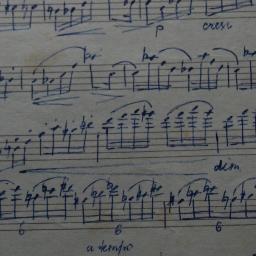 p cresc
dim
6 6 6
a tempo